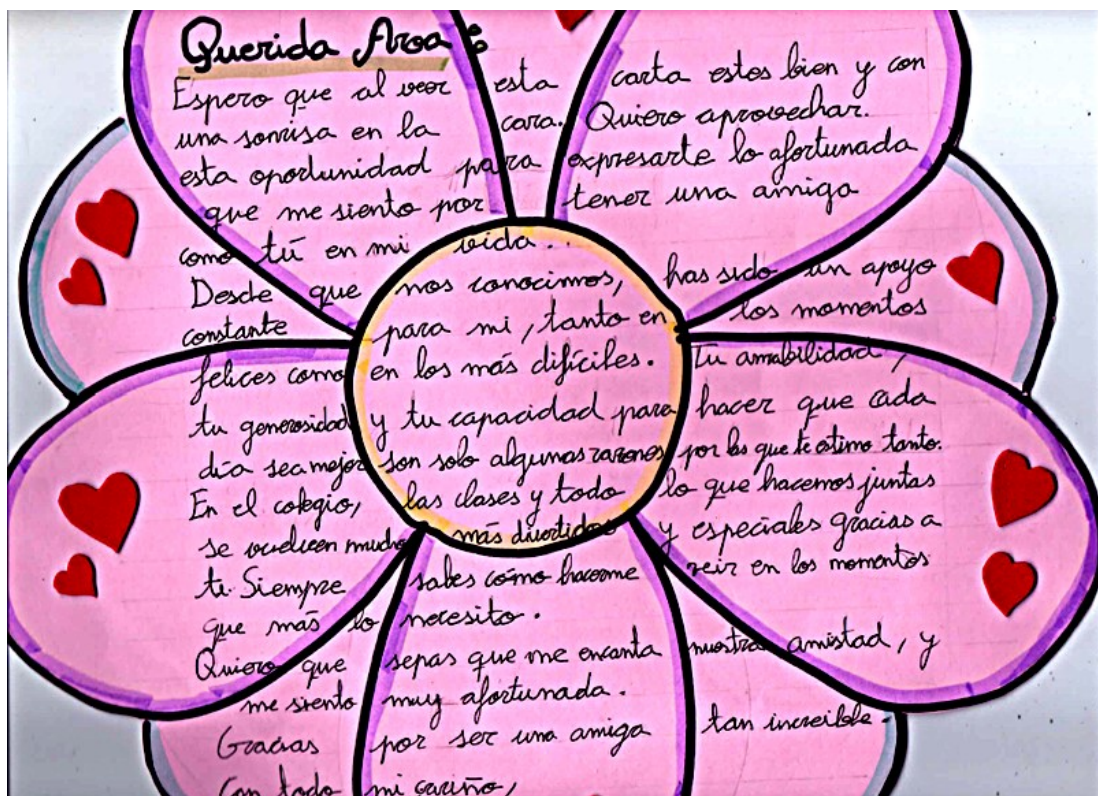 Querida Aroa:
Espero que al veer esta carta estes bien y con
una sonrisa en la cara. Quiero aprovechar.
esta oportunidad para expresarte lo afortunada
que me siento por tener una amiga
como tú en mi vida..
Desde que nos conocimos, has sido un apoyo
constante para mi, tanto en los momentos
felices como en los más difíciles. Tu amabilidad,
tu generosidad y tu capacidad para hacer que cada
día sea mejor son solo algunas razones por las que te estimo tanto.
En el colegio, las clases y todo lo que hacemos juntas
se vuelven mucho más divertidas y especiales gracias a
ti. Siempre sabes cómo hacerme reir en los momentos
que más lo necesito.
Quiero que sepas que me encanta nuestra amistad, y
me siento muy afortunada.
Gracias por ser una amiga tan increible.
Con todo mi cariño,